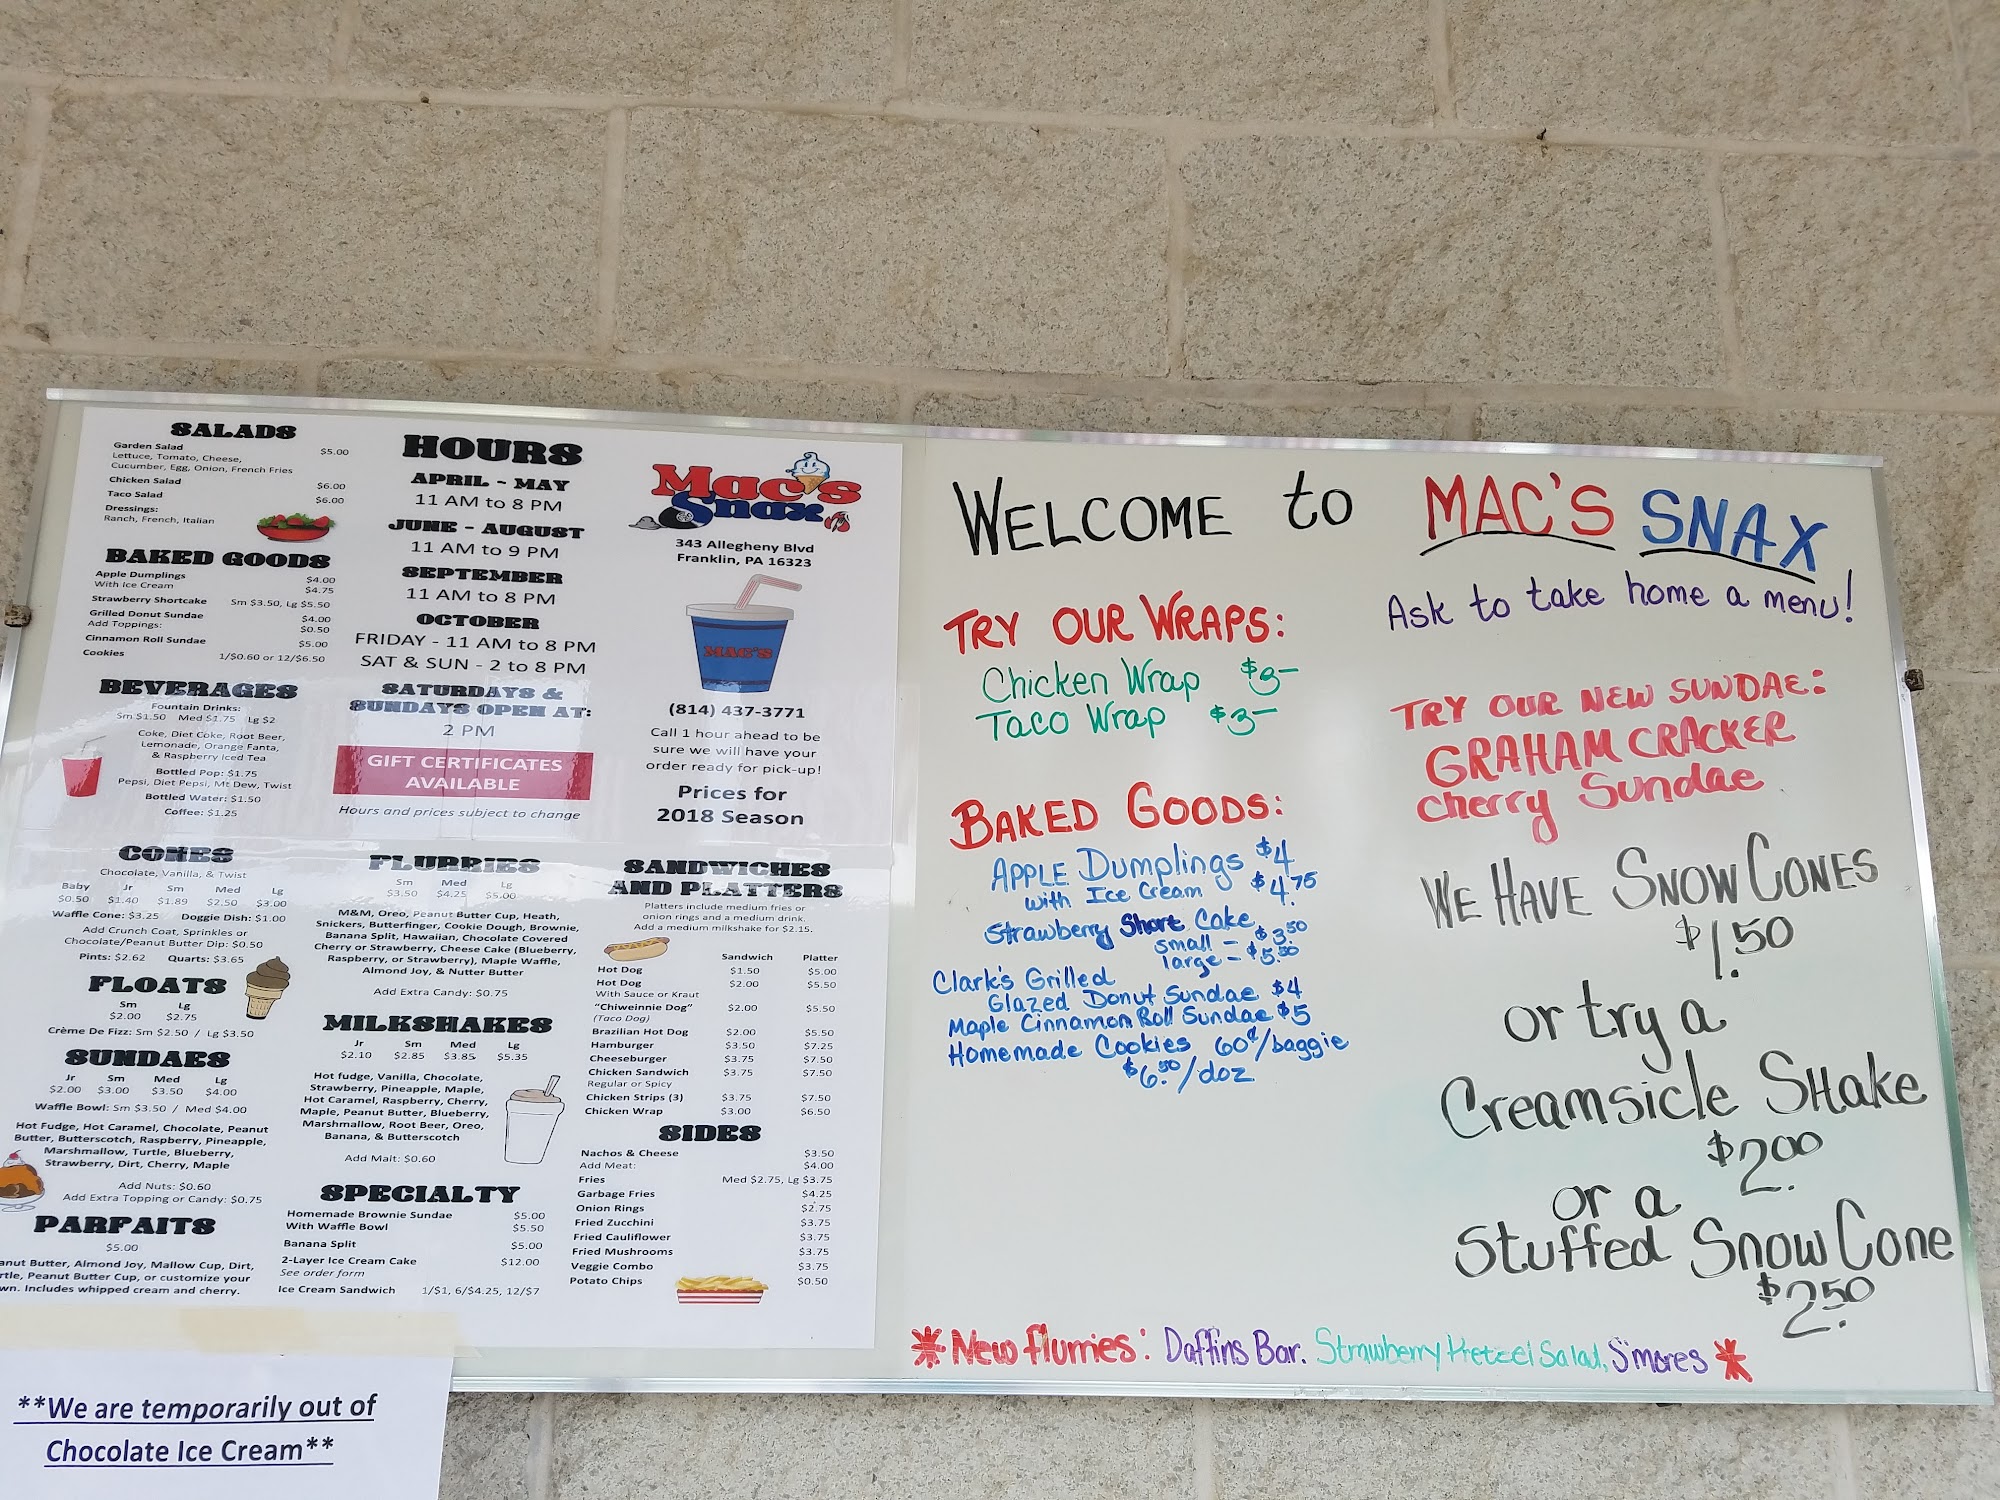 SALADS
Garden Salad $5.00
Lettuce, Tomato, Cheese,
Cucumber, Egg, Onion, French Fries
Chicken Salad $6.00
Taco Salad $6.00
Dressings:
Ranch, French, Italian
BAKED GOODS
Apple Dumplings $4.00
With Ice Cream $4.75
Strawberry Shortcake Sm $3.50, Lg $5.50
Grilled Donut Sundae $4.00
Add Toppings: $0.50
Cinnamon Roll Sundae $5.00
Cookies 1/$0.60 or 12/$6.50
BEVERAGES
Fountain Drinks:
Sm $1.50 Med $1.75 Lg $2
Coke, Diet Coke, Root Beer,
Lemonade, Orange Fanta,
& Raspberry Iced Tea
Bottled Pop: $1.75
Pepsi, Diet Pepsi, Mt Dew, Twist
Bottled Water: $1.50
Coffee: $1.25
HOURS
APRIL - MAY
11 AM to 8 PM
JUNE - AUGUST
11 AM to 9 PM
SEPTEMBER
11 AM to 8 PM
OCTOBER
FRIDAY - 11 AM to 8 PM
SAT & SUN - 2 to 8 PM
SATURDAYS &
SUNDAYS OPEN AT:
2 PM
GIFT CERTIFICATES
AVAILABLE
Hours and prices subject to change
Mac's
Snax
343 Allegheny Blvd
Franklin, PA 16323
MAC'S
(814) 437-3771
Call 1 hour ahead to be
sure we will have your
order ready for pick-up!
Prices for
2018 Season
CONES
Chocolate, Vanilla, & Twist
Baby Jr Sm Med Lg
$0.50 $1.40 $1.89 $2.50 $3.00
Waffle Cone: $3.25 Doggie Dish: $1.00
Add Crunch Coat, Sprinkles or
Chocolate/Peanut Butter Dip: $0.50
Pints: $2.62 Quarts: $3.65
FLOATS
Sm Lg
$2.00 $2.75
Crème De Fizz: Sm $2.50 / Lg $3.50
SUNDAES
Jr Sm Med Lg
$2.00 $3.00 $3.50 $4.00
Waffle Bowl: Sm $3.50 / Med $4.00
Hot Fudge, Hot Caramel, Chocolate, Peanut
Butter, Butterscotch, Raspberry, Pineapple,
Marshmallow, Turtle, Blueberry,
Strawberry, Dirt, Cherry, Maple
Add Nuts: $0.60
Add Extra Topping or Candy: $0.75
PARFAITS
$5.00
anut Butter, Almond Joy, Mallow Cup, Dirt,
rtle, Peanut Butter Cup, or customize your
wn. Includes whipped cream and cherry.
FLURRIES
Sm Med Lg
$3.50 $4.25 $5.00
M&M, Oreo, Peanut Butter Cup, Heath,
Snickers, Butterfinger, Cookie Dough, Brownie,
Banana Split, Hawaiian, Chocolate Covered
Cherry or Strawberry, Cheese Cake (Blueberry,
Raspberry, or Strawberry), Maple Waffle,
Almond Joy, & Nutter Butter
Add Extra Candy: $0.75
MILKSHAKES
Jr Sm Med Lg
$2.10 $2.85 $3.85 $5.35
Hot fudge, Vanilla, Chocolate,
Strawberry, Pineapple, Maple,
Hot Caramel, Raspberry, Cherry,
Maple, Peanut Butter, Blueberry,
Marshmallow, Root Beer, Oreo,
Banana, & Butterscotch
Add Malt: $0.60
SPECIALTY
Homemade Brownie Sundae $5.00
With Waffle Bowl $5.50
Banana Split $5.00
2-Layer Ice Cream Cake $12.00
See order form
Ice Cream Sandwich 1/$1, 6/$4.25, 12/$7
SANDWICHES
AND PLATTERS
Platters include medium fries or
onion rings and a medium drink.
Add a medium milkshake for $2.15.
Sandwich Platter
Hot Dog $1.50 $5.00
Hot Dog $2.00 $5.50
With Sauce or Kraut
"Chiweinnie Dog" $2.00 $5.50
(Taco Dog)
Brazilian Hot Dog $2.00 $5.50
Hamburger $3.50 $7.25
Cheeseburger $3.75 $7.50
Chicken Sandwich $3.75 $7.50
Regular or Spicy
Chicken Strips (3) $3.75 $7.50
Chicken Wrap $3.00 $6.50
SIDES
Nachos & Cheese $3.50
Add Meat: $4.00
Fries Med $2.75, Lg $3.75
Garbage Fries $4.25
Onion Rings $2.75
Fried Zucchini $3.75
Fried Cauliflower $3.75
Fried Mushrooms $3.75
Veggie Combo $3.75
Potato Chips $0.50
**We are temporarily out of
Chocolate Ice Cream**
WELCOME to MAC'S SNAX
Ask to take home a menu!
TRY OUR WRAPS:
Chicken Wrap $3-
Taco Wrap $3-
BAKED GOODS:
APPLE Dumplings $4
with Ice Cream $4.75
Strawberry Short Cake
small - $3.50
large - $5.50
Clark's Grilled
Glazed Donut Sundae $4
Maple Cinnamon Roll Sundae $5
Homemade Cookies 60¢/baggie
$6.50/doz
TRY OUR NEW SUNDAE:
GRAHAM CRACKER
Cherry Sundae
WE HAVE SNOW CONES
$1.50
or try a
Creamsicle SHake
$2.00
or a
Stuffed Snow Cone
$2.50
* New flurries: Daffins Bar, Strawberry Pretzel Salad, S'mores *